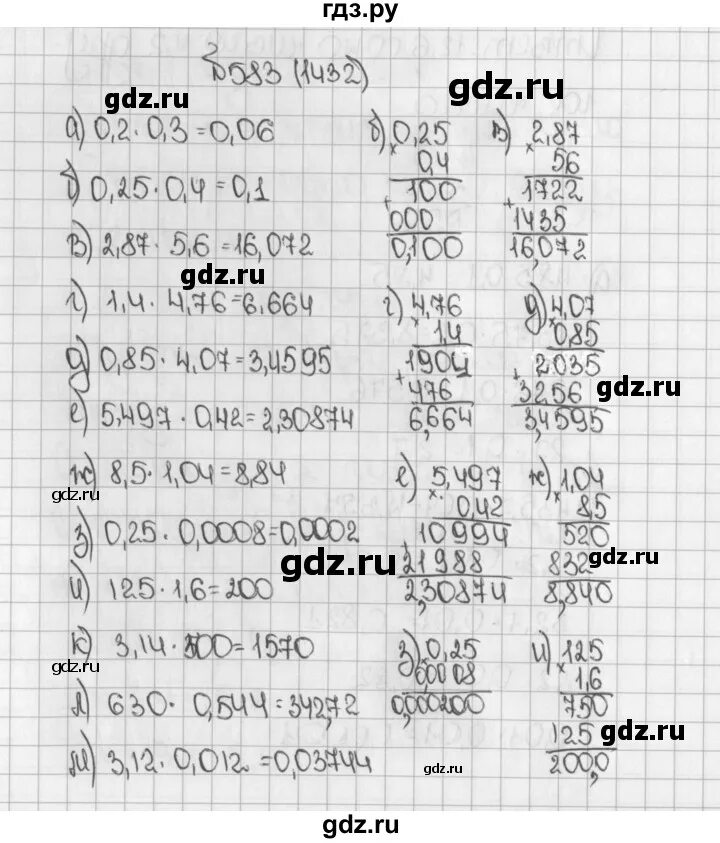 гдз.ру
№583 (1432)
gdz.ru
gdz.ru
а) 0,2 · 0,3 = 0,06
б) 0,25 · 0,4 = 0,1
в) 2,87 · 5,6 = 16,072
gdz.ru
г) 1,4 · 4,76 = 6,664
д) 0,85 · 4,07 = 3,4595
е) 5,497 · 0,42 = 2,30874
ж) 8,5 · 1,04 = 8,84
gdz.ru
з) 0,25 · 0,0008 = 0,0002
и) 125 · 1,6 = 200
к) 3,14 · 500 = 1570
gdz.ru
л) 630 · 0,544 = 342,72
м) 3,12 · 0,012 = 0,03744
б) 0,25
× 0,4
100
+ 000
0,100
в) 2,87
× 56
1722
+ 1435
16,072
г) 4,76
× 1,4
1904
+ 476
6,664
д) 4,07
× 0,85
2035
+ 3256
3,4595
gdz.ru
е) 5,497
× 0,42
10994
+ 21988
2,30874
gdz.ru
ж) 1,04
× 8,5
520
832
8,840
з) 0,25
× 0,0008
0,000200
и) 125
× 1,6
750
125
200,0
gdz.ru
gdz.ru
gdz.ru